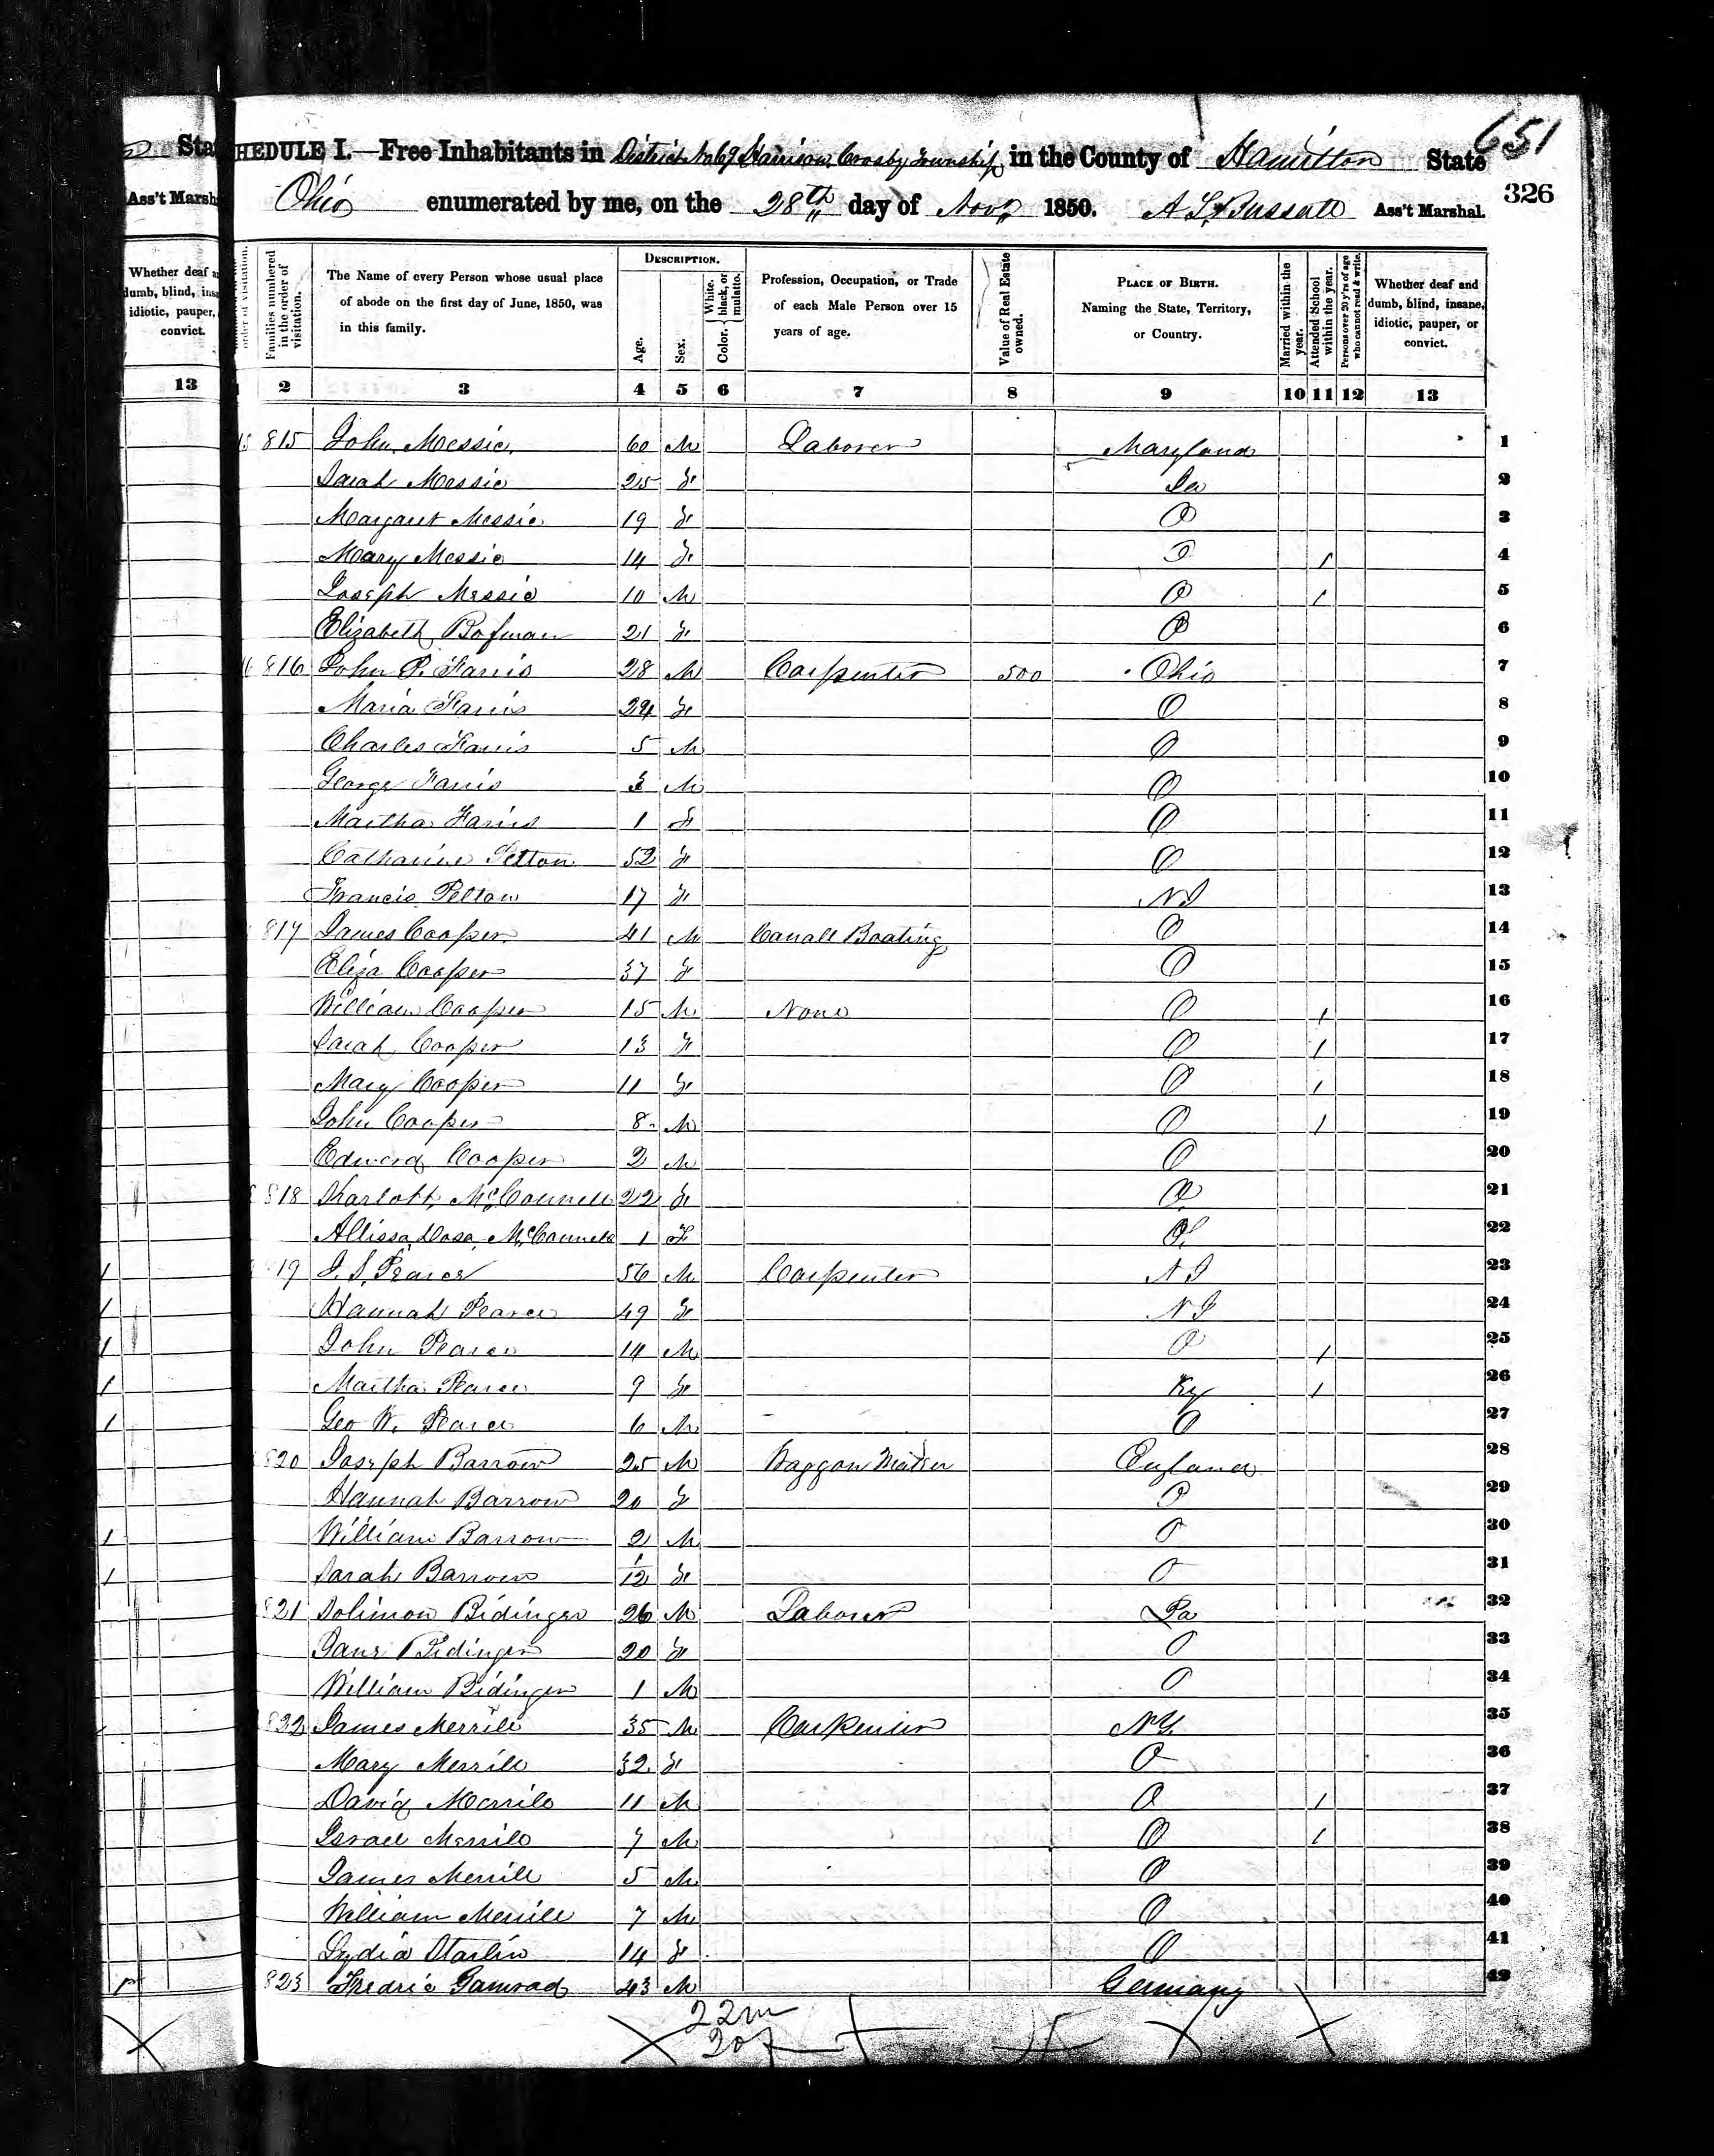 651
HEDULE I.—Free Inhabitants in District No 69 Harrison, Crosby Township in the County of Hamilton State
Ohio enumerated by me, on the 28th day of Novr 1850. A S Bussall Ass't Marshal. 326
Sta
Ass't Marsh
Whether deaf a
dumb, blind, insa
idiotic, pauper,
convict.
13
order of visitation.
Families numbered in the order of visitation.
The Name of every Person whose usual place of abode on the first day of June, 1850, was in this family.
DESCRIPTION.
Age.
Sex.
Color. { White, black, or mulatto.
Profession, Occupation, or Trade of each Male Person over 15 years of age.
Value of Real Estate owned.
PLACE OF BIRTH. Naming the State, Territory, or Country.
Married within the year.
Attended School within the year.
Persons over 20 y'rs of age who cannot read & write.
Whether deaf and dumb, blind, insane, idiotic, pauper, or convict.
2 3 4 5 6 7 8 9 10 11 12 13
15 815 John Messic 60 M Laborer Maryland 1
Sarah Messic 25 F 2
Margaret Messic 19 F O 3
Mary Messic 14 F 1 4
Joseph Messic 10 M O 1 5
Elizabeth Bofman 21 F O 6
816 John P. Farris 28 M Carpenter 500 Ohio 7
Maria Farris 24 F O 8
Charles Farris 5 M O 9
George Farris 3 M O 10
Martha Farris 1 F O 11
Catharine Pelton 52 F O 12
Francis Pelton 17 F N J 13
817 James Cooper 41 M Canall Boating O 14
Eliza Cooper 37 F O 15
William Cooper 15 M None O 1 16
Sarah Cooper 13 F O 1 17
Mary Cooper 11 F O 1 18
John Cooper 8 M O 1 19
Edward Cooper 2 M O 20
818 Sharlott McConnell 22 F O 21
Allissa Dosa McConnell 1 F O 22
19 J. S. Pearce 56 M Carpenter N J 23
Hannah Pearce 49 F N J 24
John Pearce 14 M O 1 25
Martha Pearce 9 F Ky 1 26
Geo W. Pearce 6 M O 27
820 Joseph Barrow 25 M Waggon Maker England 28
Hannah Barrow 20 F O 29
William Barrow 2 M O 30
Sarah Barrow 1/12 F O 31
821 Solimon Bidinger 26 M Laborer Pa 32
Jane Bidinger 20 F O 33
William Bidinger 1 M O 34
822 James Merrill 35 M Carpenter N Y. 35
Mary Merrill 32 F O 36
David Merrill 11 M O 1 37
Israel Merrill 7 M O 1 38
James Merrill 5 M O 39
William Merrill 7 M O 40
Lydia Starlin 14 F O 41
823 Fredric Gamrad 43 M Germany 42
22m
20f